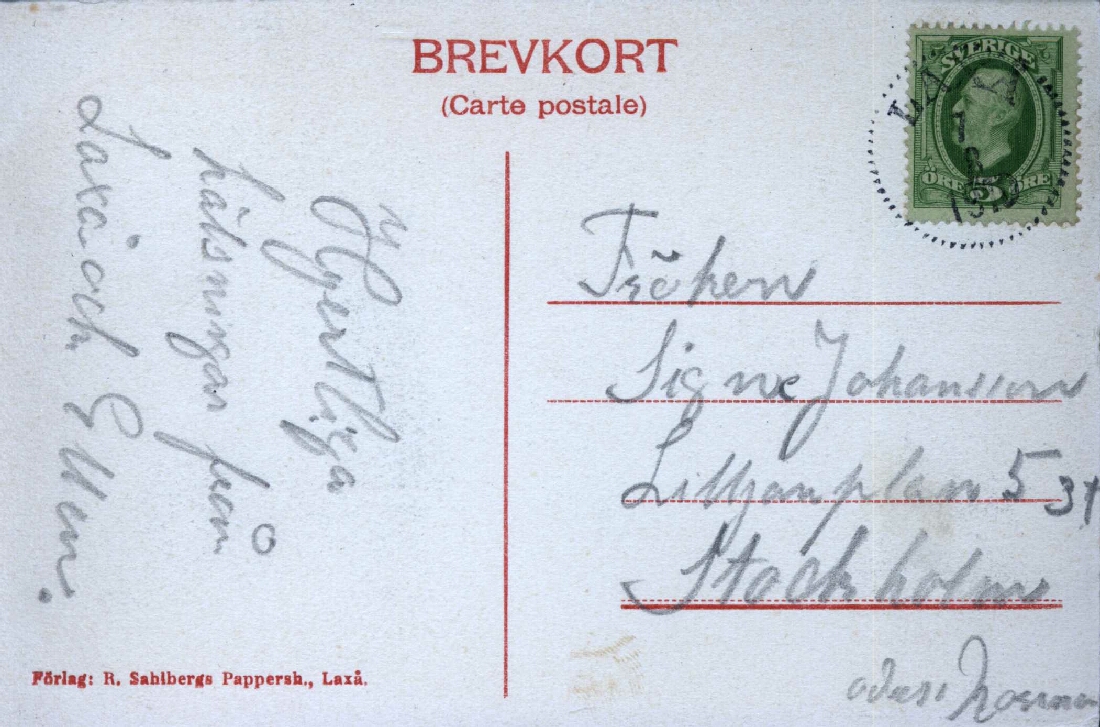 BREVKORT
(Carte postale)
SVERIGE
LAXÅ
ÖRE 5 ÖRE
Hjertliga
hälsningar från
Laxå och Ellen.
Fröken
Signe Johansson
Lilljanplan 5 31
Stockholm
Förlag: R. Sahlbergs Pappersh., Laxå.